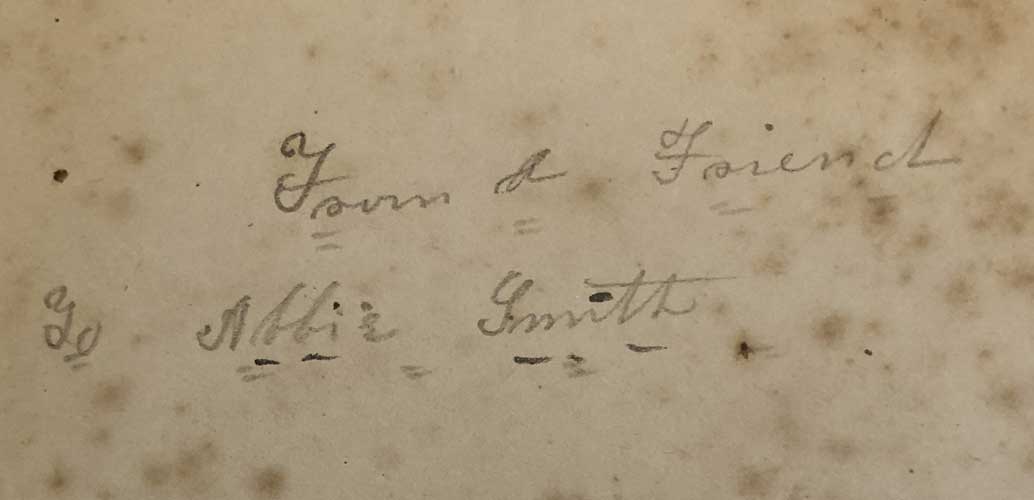 From A Friend
To Abbie Smith